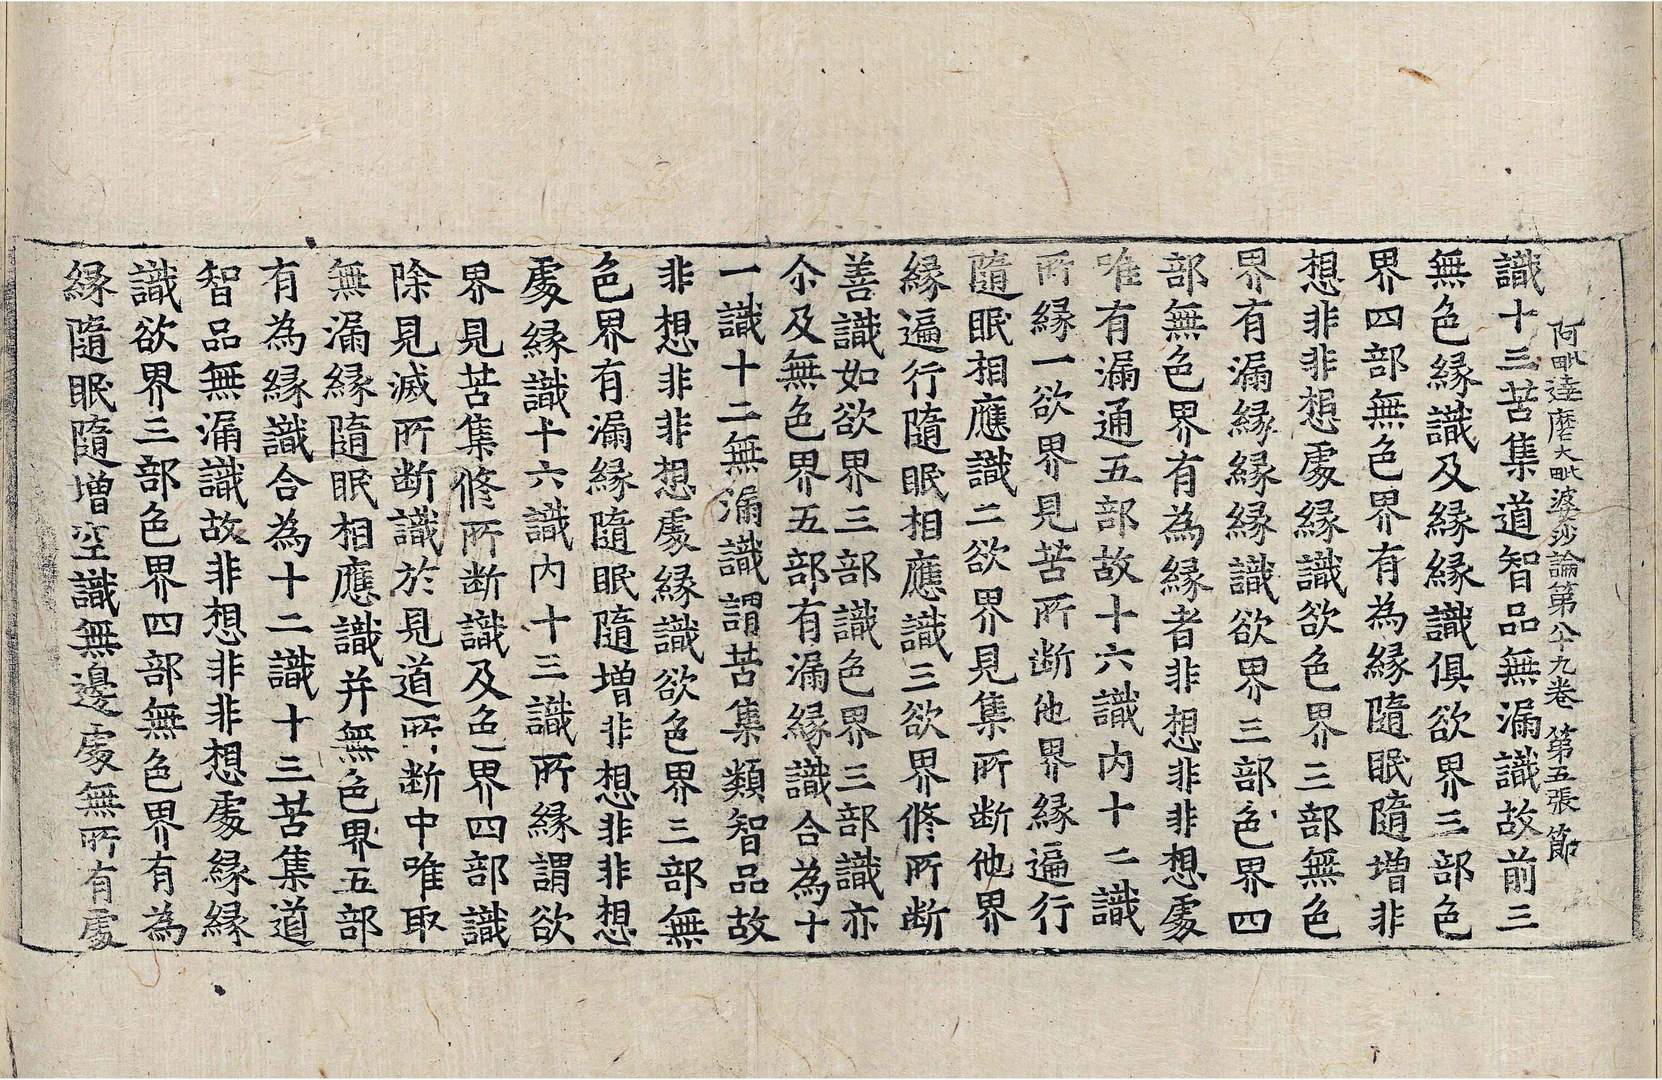 阿毗達磨大毗婆沙論第八十九卷 第五張 節
識十三苦集道智品無漏識故前三
無色緣識及緣緣識俱欲界三部色
界四部無色界有為緣隨眠隨增非
想非非想處緣識欲色界三部無色
界有漏緣緣緣識欲界三部色界四
部無色界有為緣者非想非非想處
唯有漏通五部故十六識內十二識
所緣一欲界見苦所斷他界緣遍行
隨眠相應識二欲界見集所斷他界
緣遍行隨眠相應識三欲界修所斷
善識如欲界三部識色界三部識亦
尒及無色界五部有漏緣識合為十
一識十二無漏識謂苦集類智品故
非想非非想處緣識欲色界三部無
色界有漏緣隨眠隨增非想非非想
處緣識十六識內十三識所緣謂欲
界見苦集修所斷識及色界四部識
除見滅所斷識於見道所斷中唯取
無漏緣隨眠相應識并無色界五部
有為緣識合為十二識十三苦集道
智品無漏識故非想非非想處緣緣
識欲界三部色界四部無色界有為
緣隨眠隨增空識無邊處無所有處